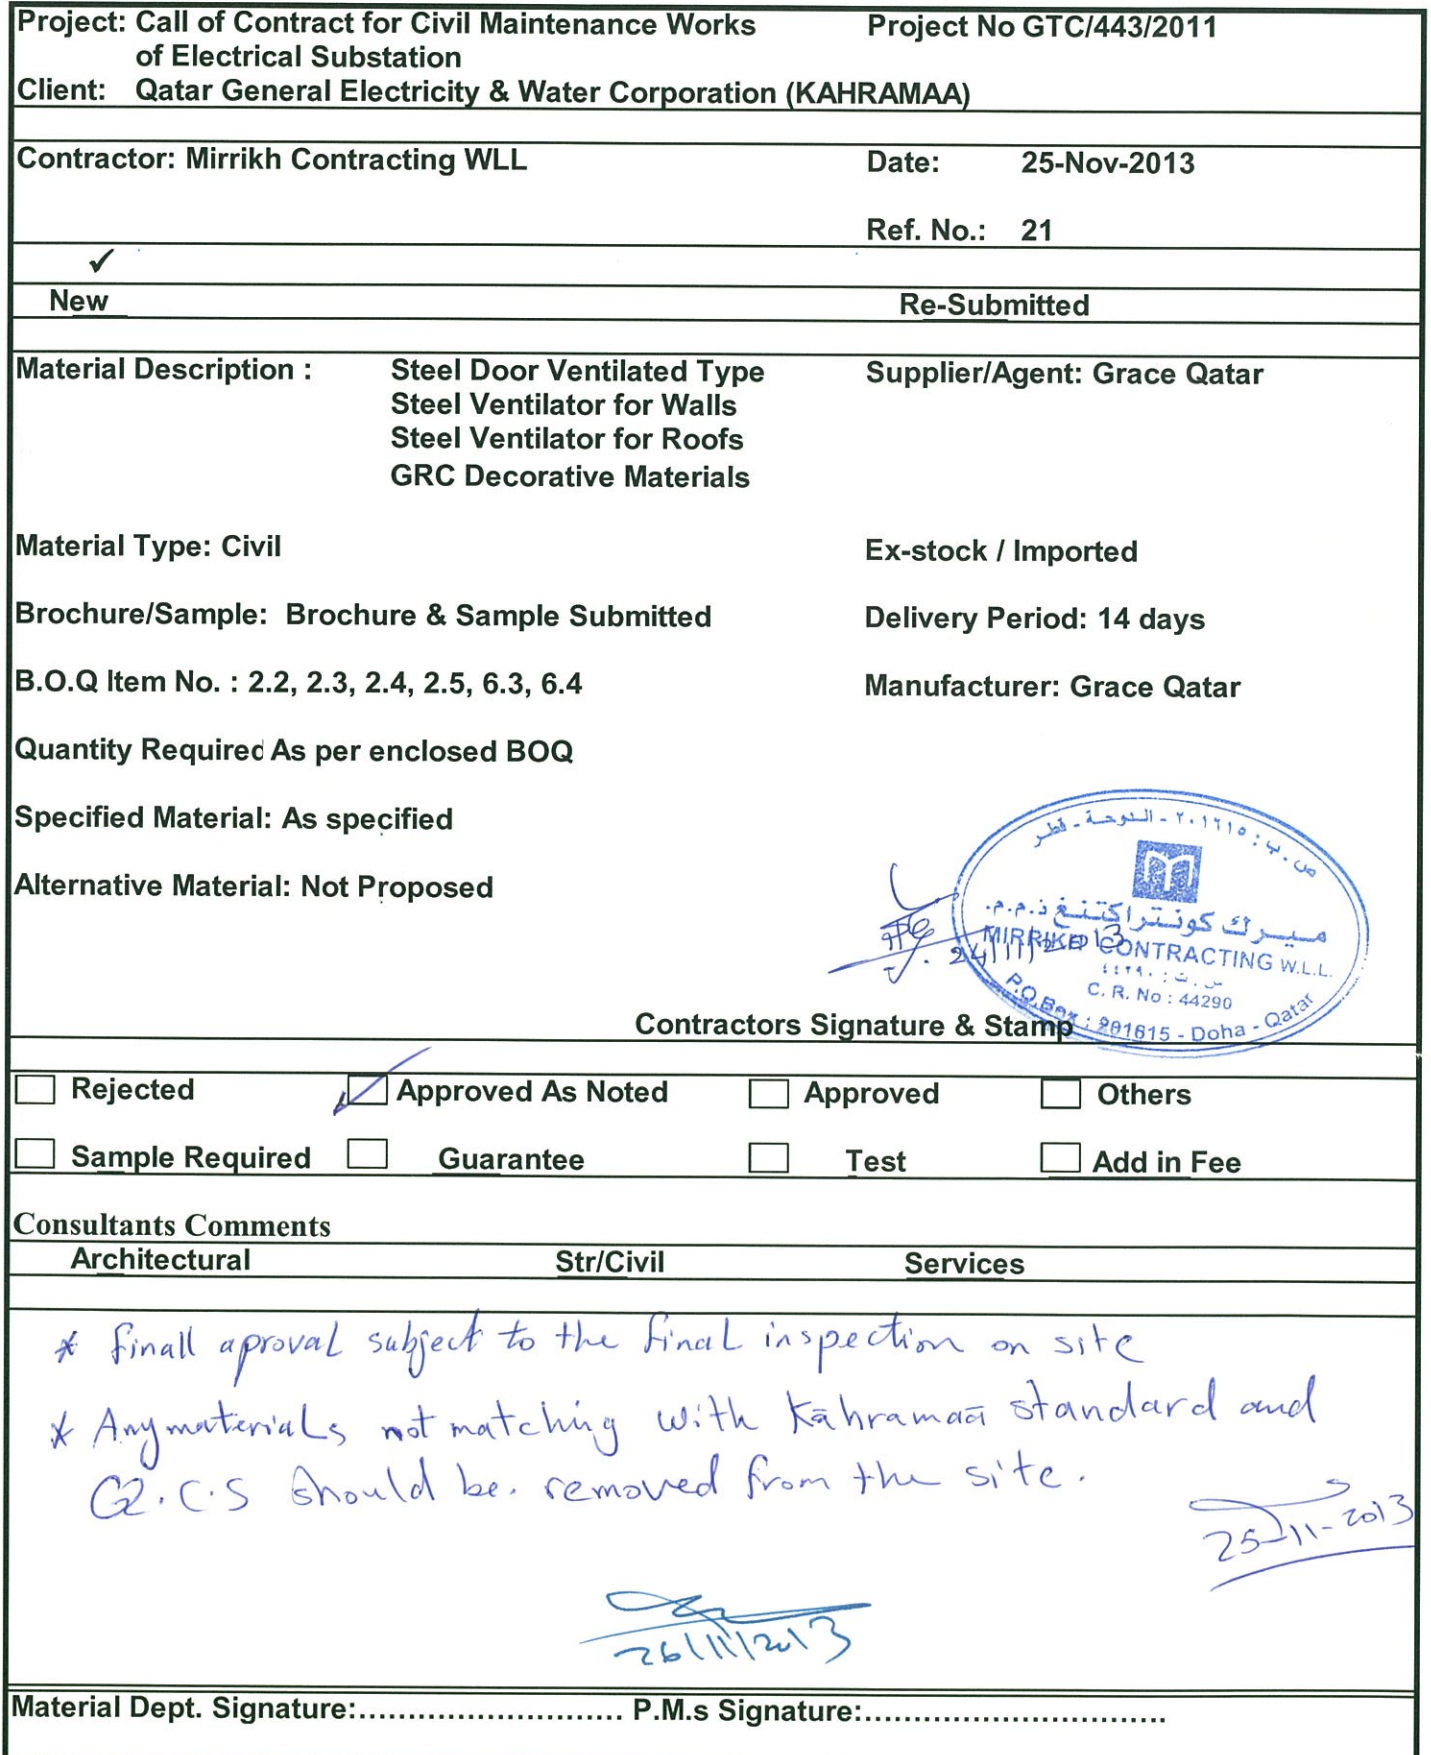 Project: Call of Contract for Civil Maintenance Works of Electrical Substation
Project No GTC/443/2011
Client: Qatar General Electricity & Water Corporation (KAHRAMAA)
Contractor: Mirrikh Contracting WLL
Date: 25-Nov-2013
Ref. No.: 21
✓
New
Re-Submitted
Material Description :
Steel Door Ventilated Type
Steel Ventilator for Walls
Steel Ventilator for Roofs
GRC Decorative Materials
Supplier/Agent: Grace Qatar
Material Type: Civil
Ex-stock / Imported
Brochure/Sample: Brochure & Sample Submitted
Delivery Period: 14 days
B.O.Q Item No. : 2.2, 2.3, 2.4, 2.5, 6.3, 6.4
Manufacturer: Grace Qatar
Quantity Required As per enclosed BOQ
Specified Material: As specified
Alternative Material: Not Proposed
ص.ب : ٢٠١٦١٥ - الدوحة - قطر
ميرك كونتراكتنغ ذ.م.م.
MIRRIKH CONTRACTING W.L.L.
س.ت : ٤٤٢٩٠
C. R. No : 44290
P.O.Box : 201615 - Doha - Qatar
24/11/2013
Contractors Signature & Stamp
Rejected
Approved As Noted
Approved
Others
Sample Required
Guarantee
Test
Add in Fee
Consultants Comments
Architectural
Str/Civil
Services
* finall aproval subject to the final inspection on site
* Any materials not matching with Kahramaa standard and
Q.C.S should be. removed from the site.
25-11-2013
26/11/2013
Material Dept. Signature:........................... P.M.s Signature:...............................